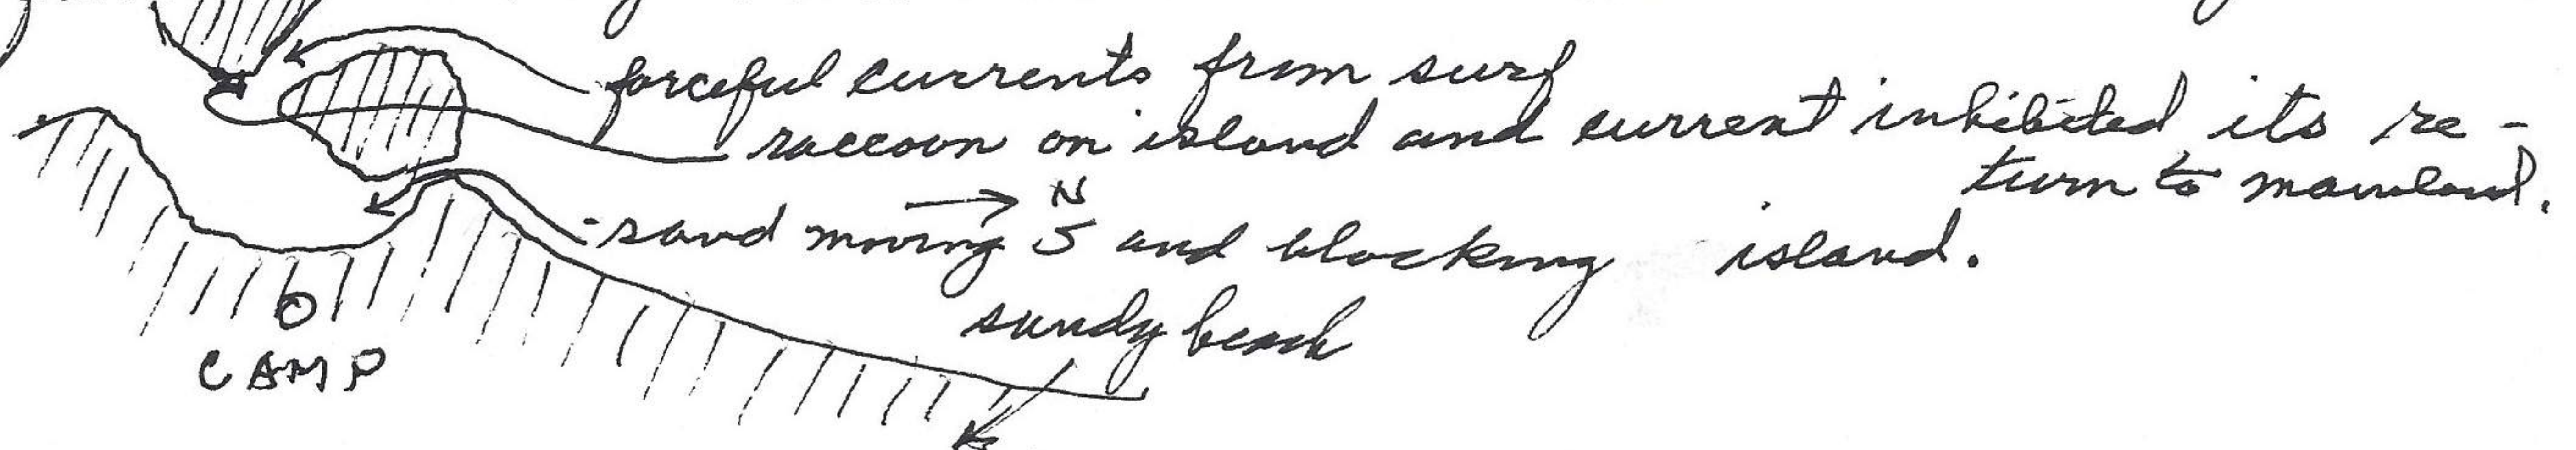 forceful currents from surf
raccoon on island and current inhibited its re-
turn to mainland.
N
sand moving S and blocking island.
sandy beach
CAMP